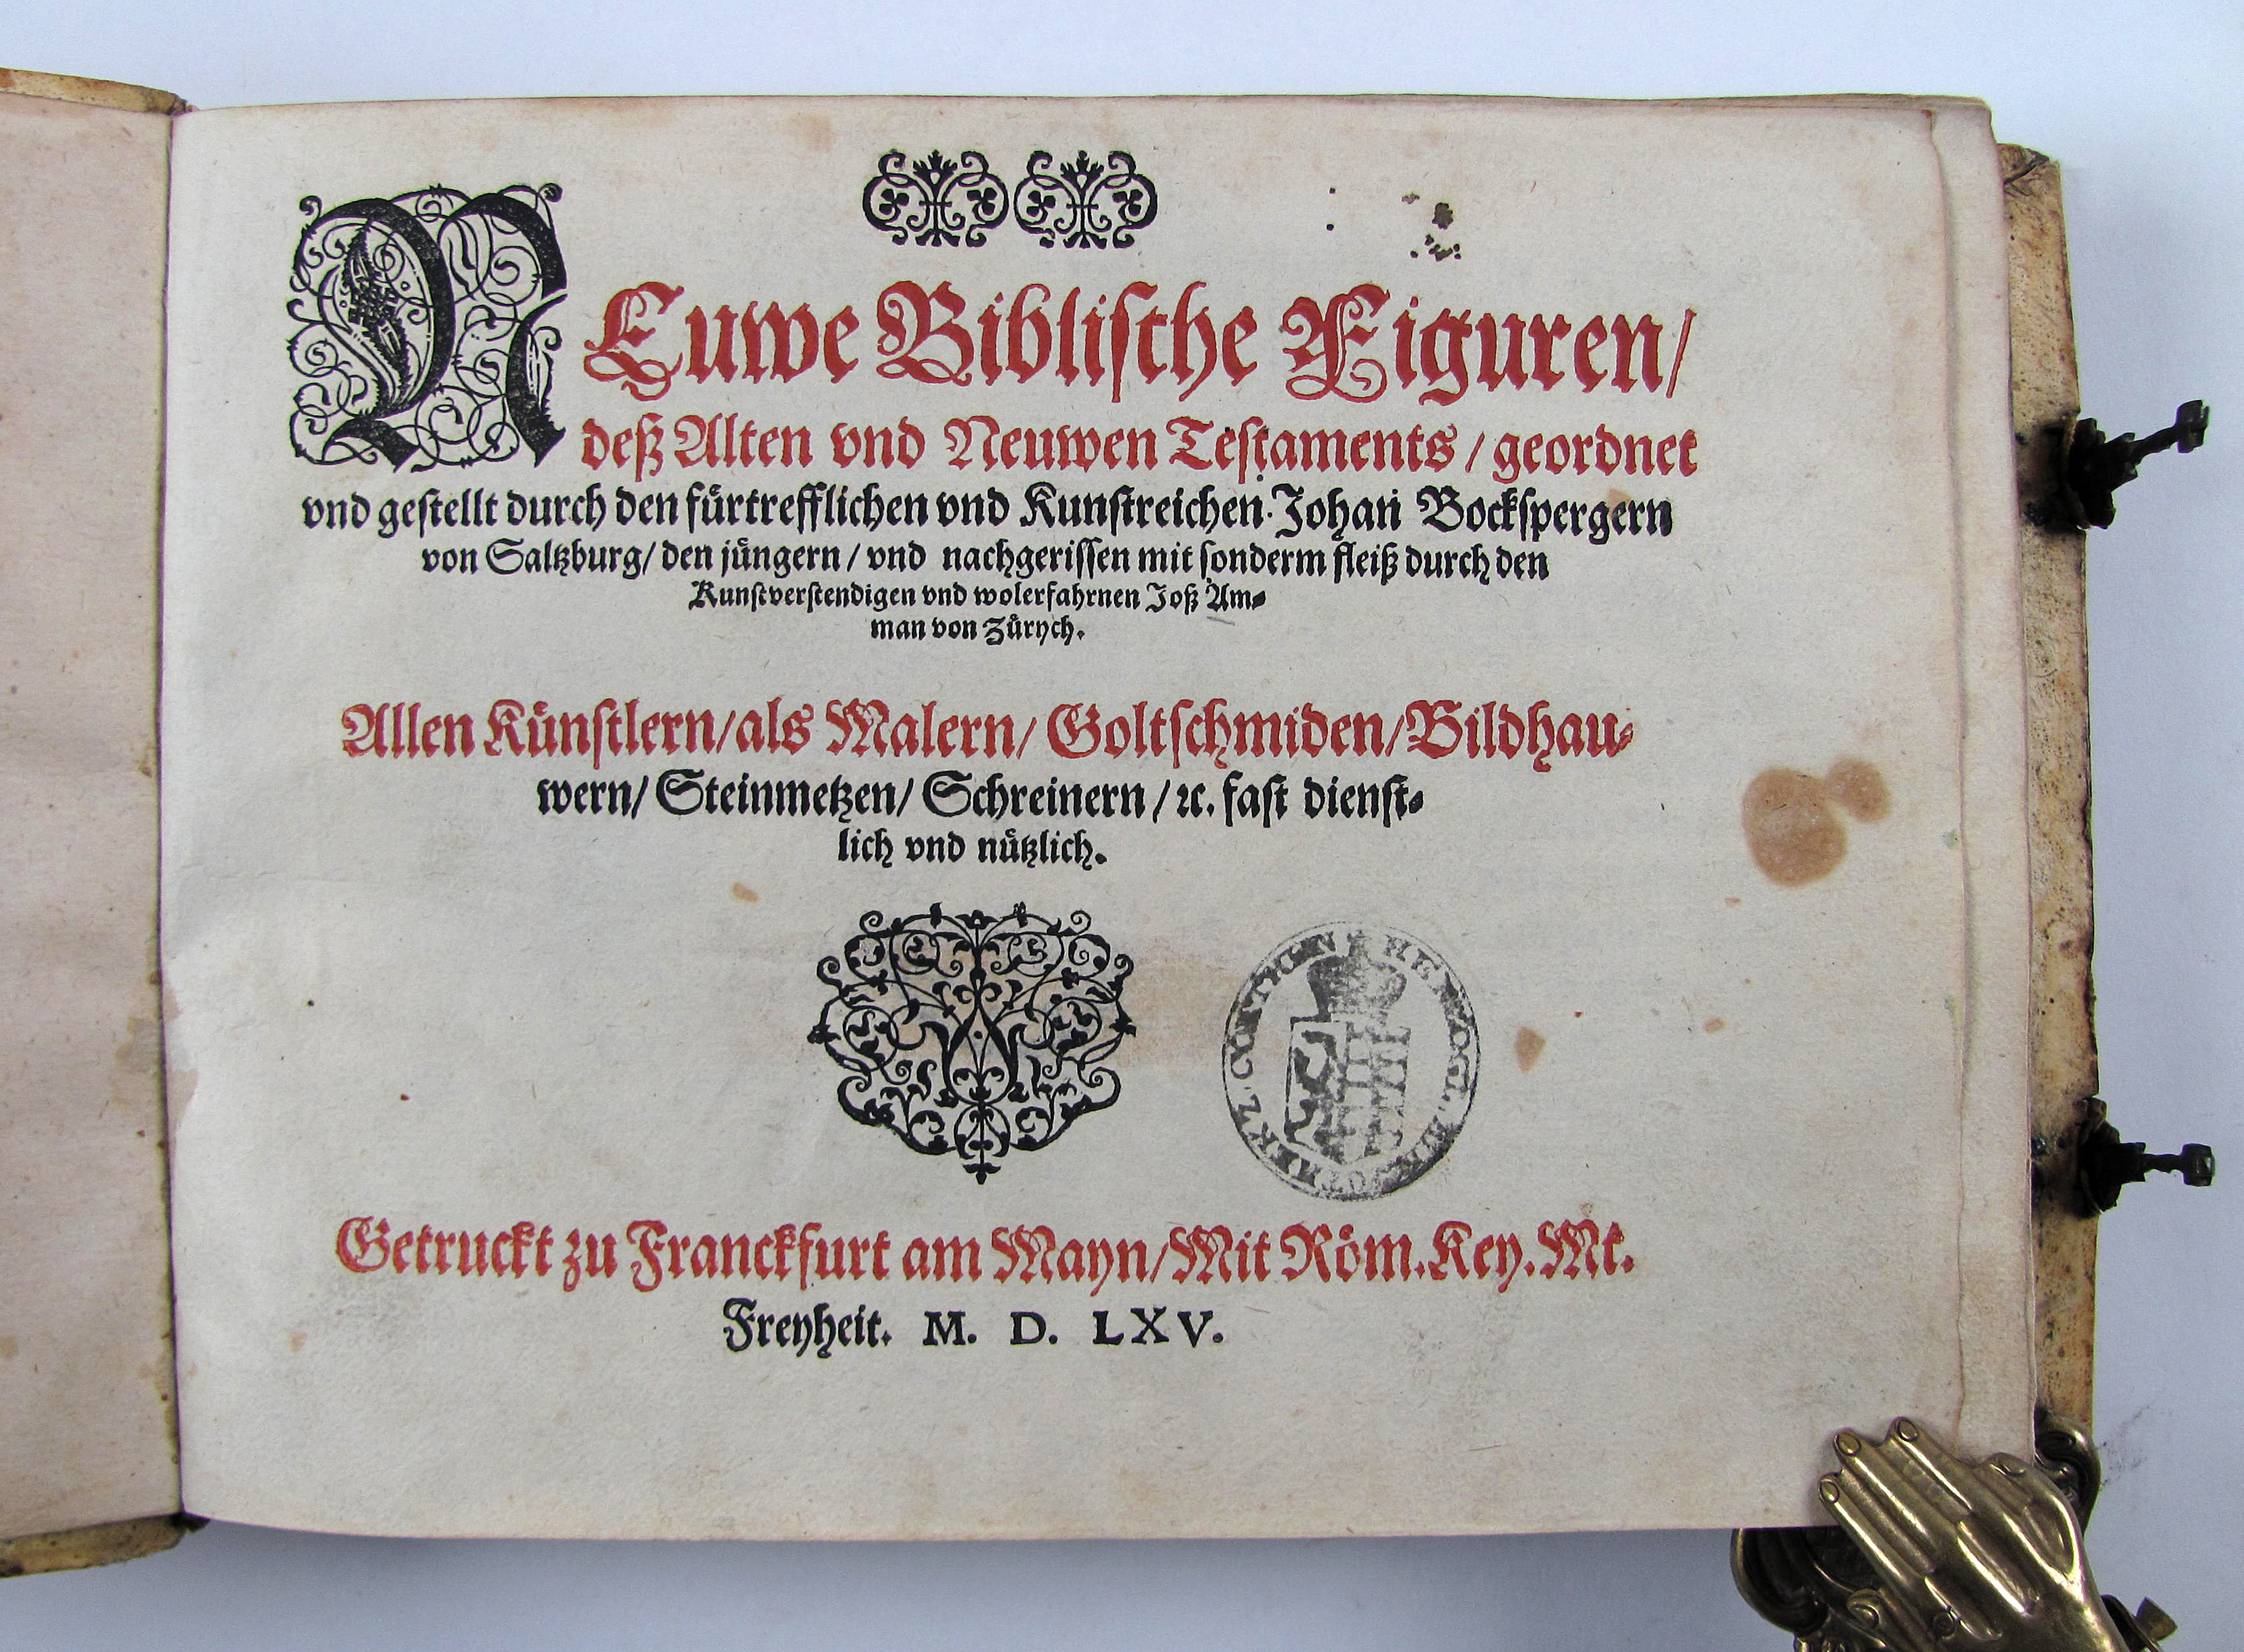 NEuwe Bibliſche Figuren/
deß Alten vnd Neuwen Teſtaments / geordnet
vnd geſtellt durch den fuͤrtrefflichen vnd Kunſtreichen Johan̄ Bockſpergern
von Saltzburg/ den juͤngern / vnd nachgeriſſen mit ſonderm fleiß durch den
Kunſtverſtendigen vnd wolerfahrnen Joß Am⸗
man von Zuͤrych.
Allen Kuͤnſtlern/ als Malern/ Goltſchmiden/ Bildhau⸗
wern/ Steinmetzen/ Schreinern / ꝛc. faſt dienſt⸗
lich vnd nuͤtzlich.
Getruckt zu Franckfurt am Mayn/ Mit Roͤm. Key. Mt.
Freyheit. M. D. LXV.